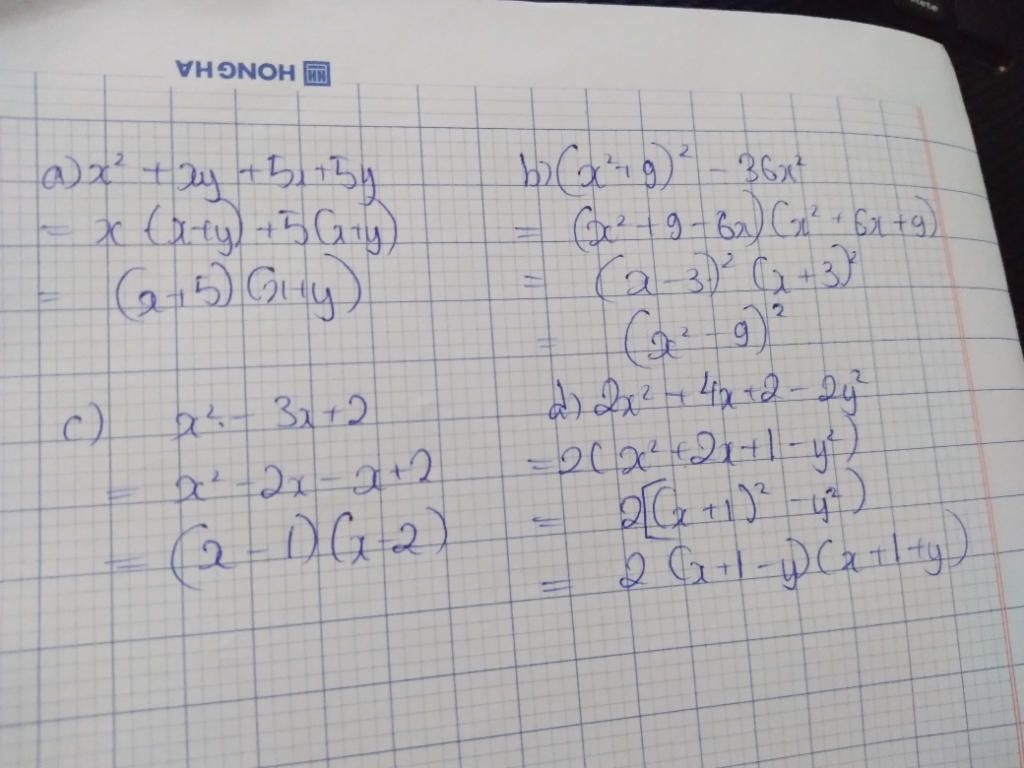 HONG HA
a) x² + xy + 5x + 5y
= x (x+y) + 5(x+y)
= (x+5)(x+y)
b) (x²+9)² - 36x²
= (x² + 9 - 6x)(x² + 6x + 9)
= (x - 3)² (x + 3)²
= (x² - 9)²
c) x² - 3x + 2
= x² - 2x - x + 2
= (x - 1)(x - 2)
d) 2x² + 4x + 2 - 2y²
= 2(x² + 2x + 1 - y²)
= 2[(x + 1)² - y²)
= 2 (x+1-y)(x+1+y)